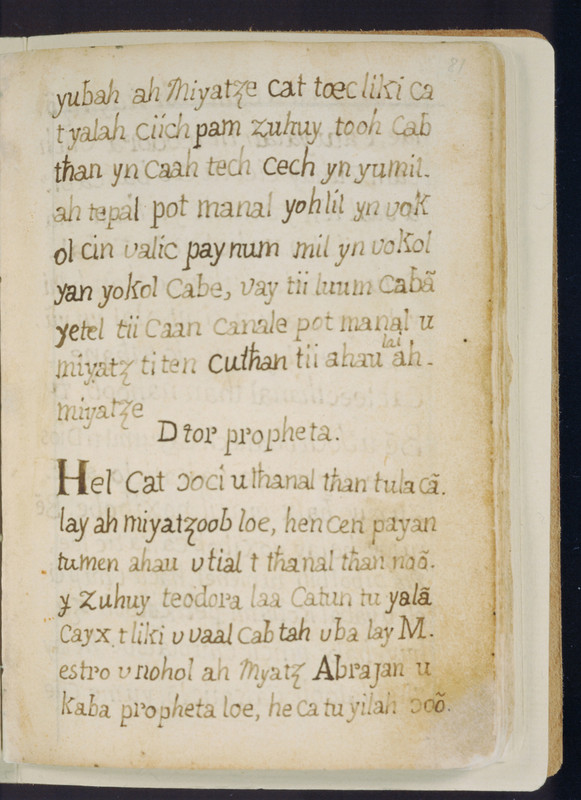 81
yubah ah Miyatze cat toec liki ca
t yalah ciich pam zuhuy tooh cab
than yn caah tech cech yn yumil.
ah tepal pot manal yohlil yn vok
ol cin valic pay num mil yn vokol
yan yokol cabe, vay tii luum cabã
yetel tii caan canale pot manal u
miyatz ti ten cuthan tii ahau lai ah.
miyatze
Dtor propheta.
Hel cat ɔoci u thanal than tulacã.
lay ah miyatzoob loe, hen cen payan
tumen ahau vtial t thanal than noõ.
y zuhuy teodora laa catun tu yalã
cayx t liki v vaal cab tah vba lay M.
estro v nohol ah Myatz Abrajan u
kaba propheta loe, he ca tu yilah ɔoõ.